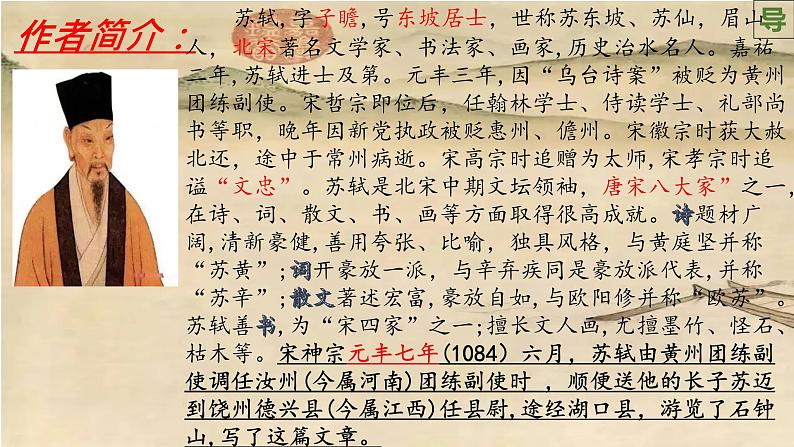 作者简介：
导
苏轼,字子瞻,号东坡居士，世称苏东坡、苏仙，眉山
人，北宋著名文学家、书法家、画家,历史治水名人。嘉祐
二年,苏轼进士及第。元丰三年,因“乌台诗案”被贬为黄州
团练副使。宋哲宗即位后，任翰林学士、侍读学士、礼部尚
书等职，晚年因新党执政被贬惠州、儋州。宋徽宗时获大赦
北还，途中于常州病逝。宋高宗时追赠为太师,宋孝宗时追
谥“文忠”。苏轼是北宋中期文坛领袖，唐宋八大家”之一,
在诗、词、散文、书、画等方面取得很高成就。诗题材广
阔,清新豪健,善用夸张、比喻，独具风格，与黄庭坚并称
“苏黄”;词开豪放一派，与辛弃疾同是豪放派代表,并称
“苏辛”;散文著述宏富,豪放自如,与欧阳修并称“欧苏”。
苏轼善书,为“宋四家”之一;擅长文人画,尤擅墨竹、怪石、
枯木等。宋神宗元丰七年(1084）六月，苏轼由黄州团练副
使调任汝州(今属河南)团练副使时 ，顺便送他的长子苏迈
到饶州德兴县(今属江西)任县尉,途经湖口县，游览了石钟
山,写了这篇文章。